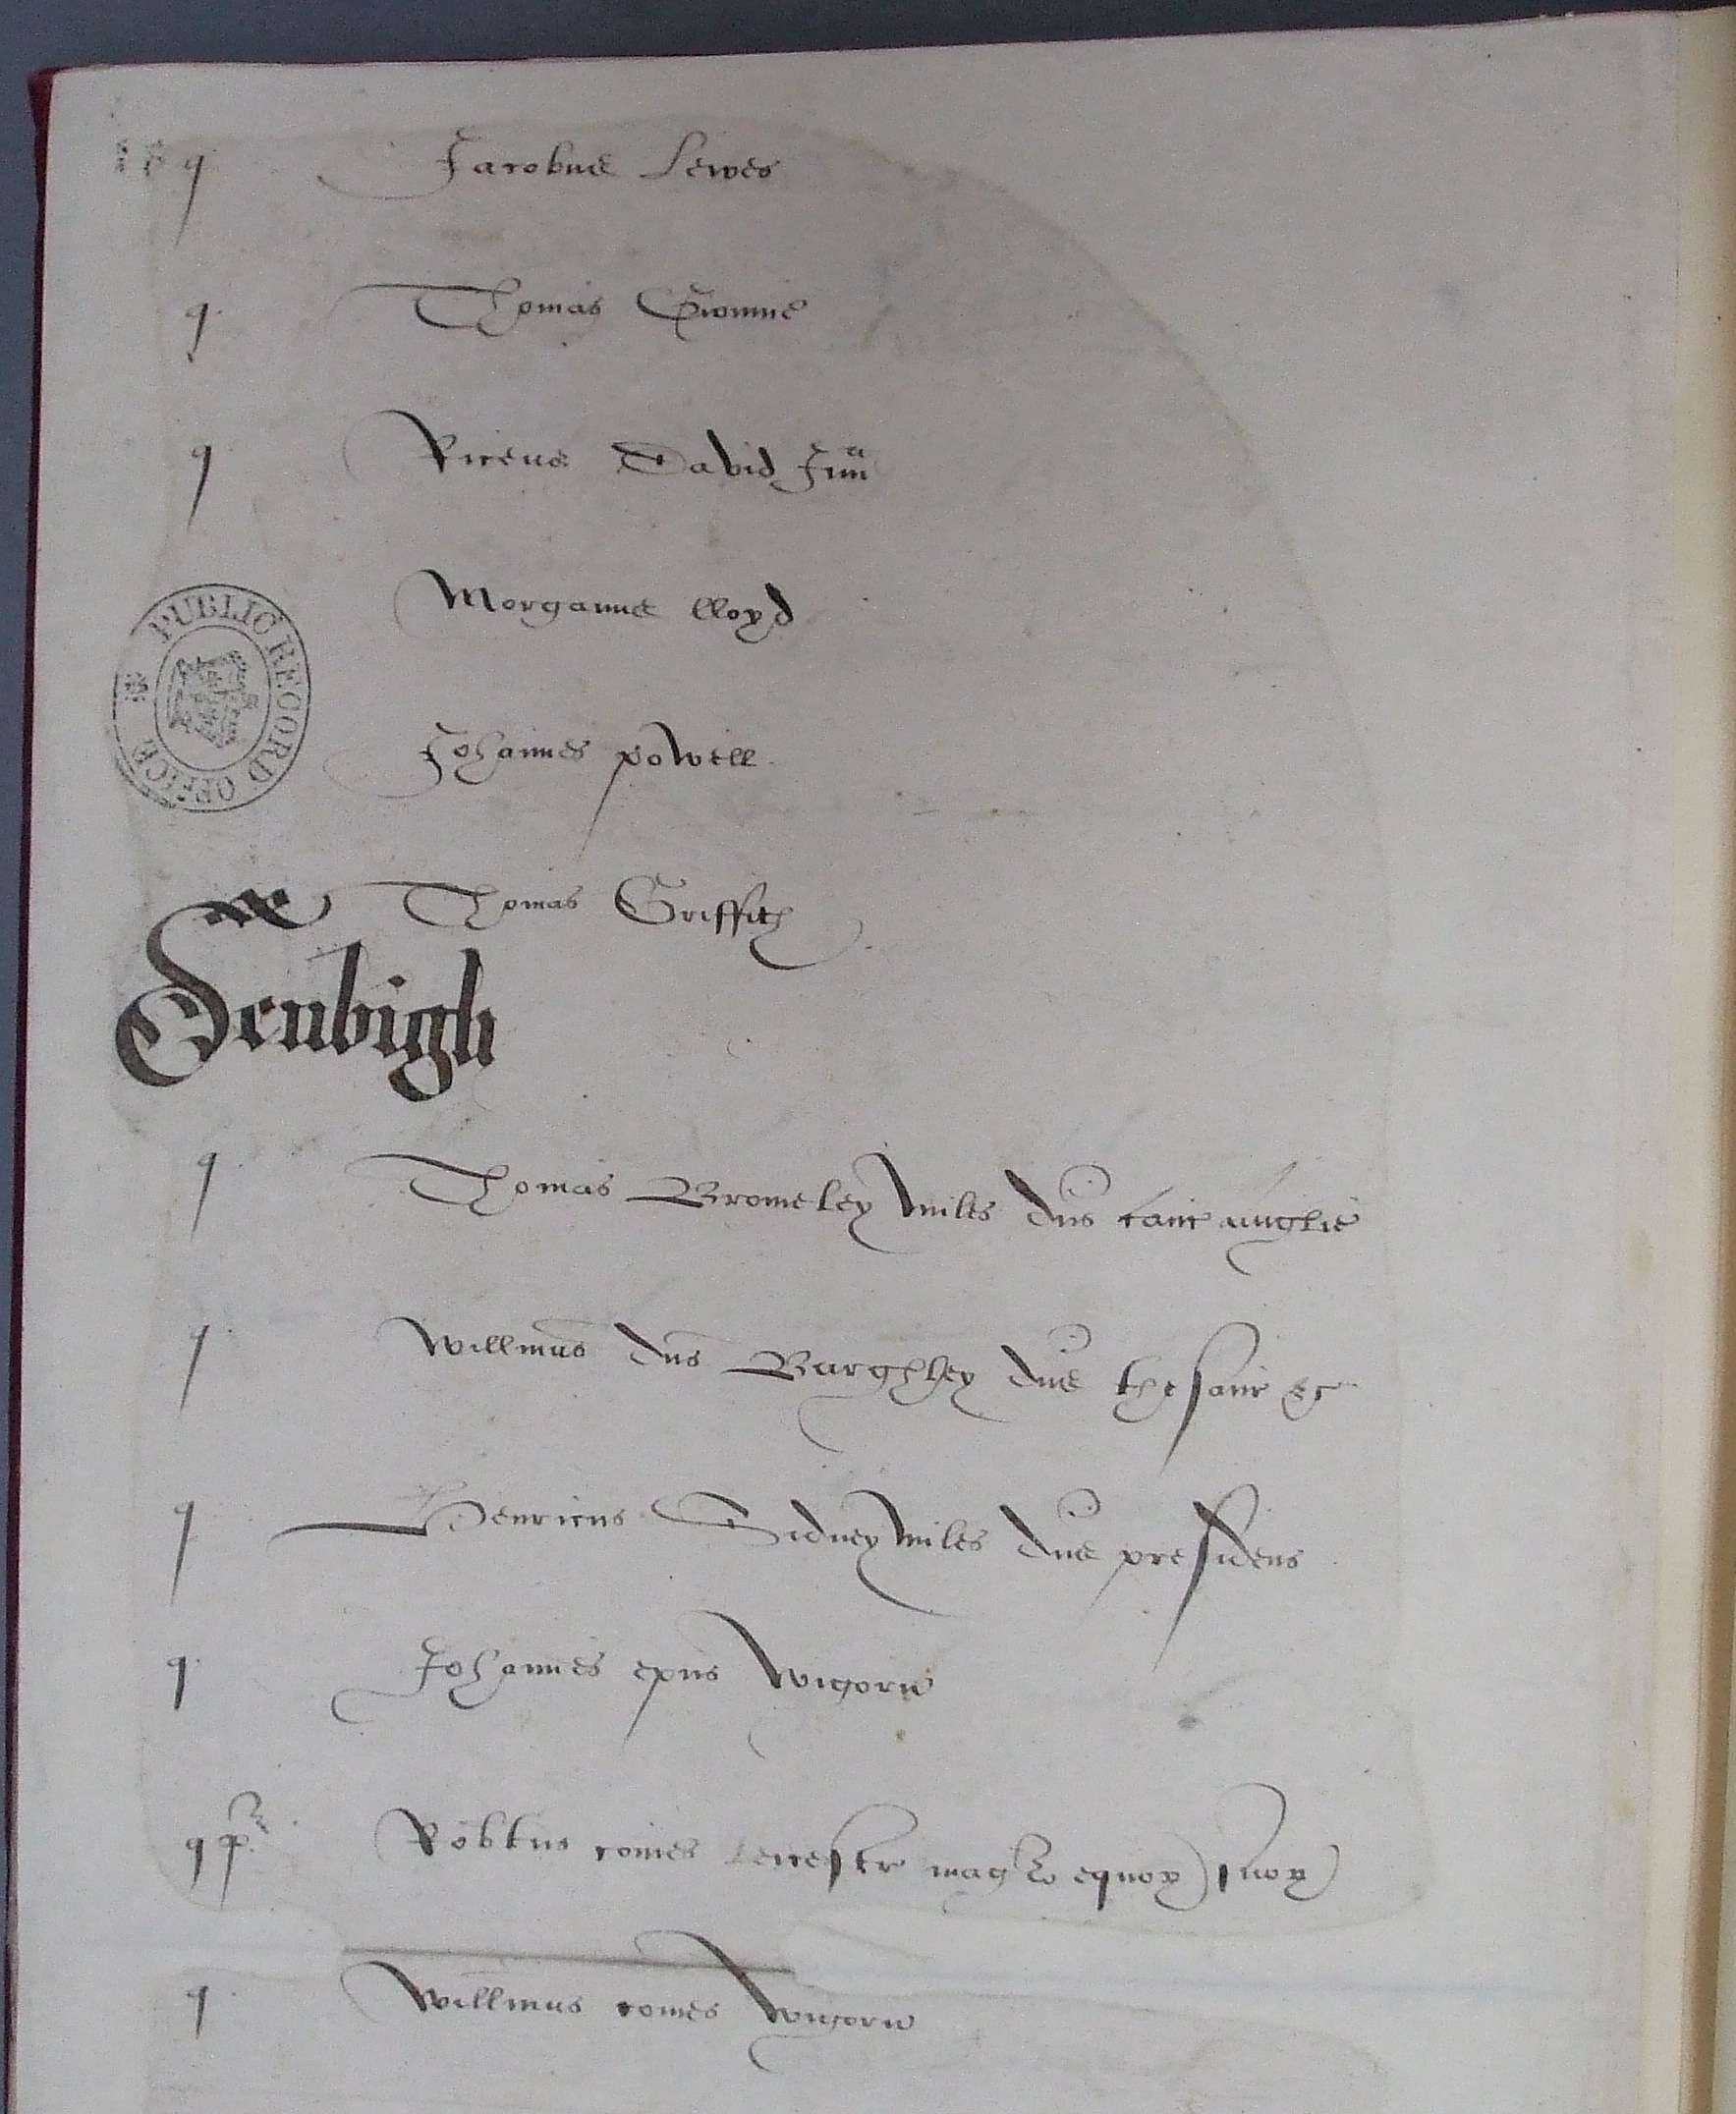 q Jacobus Lewes
q Thomas Gwynne
q Riceus David Jun
Morganus lloyd
PUBLIC RECORD OFFICE
Johannes powell
Thomas Griffith
Denbigh
q Thomas Bromeley miles dns canc anglie
q Willmus dns Burghley dns thesaur &c
q Henricus Sidney miles dns presidens
q Johannes epus wigorn
q Robtus comes leicestr equor suor
q Willmus comes wigorn